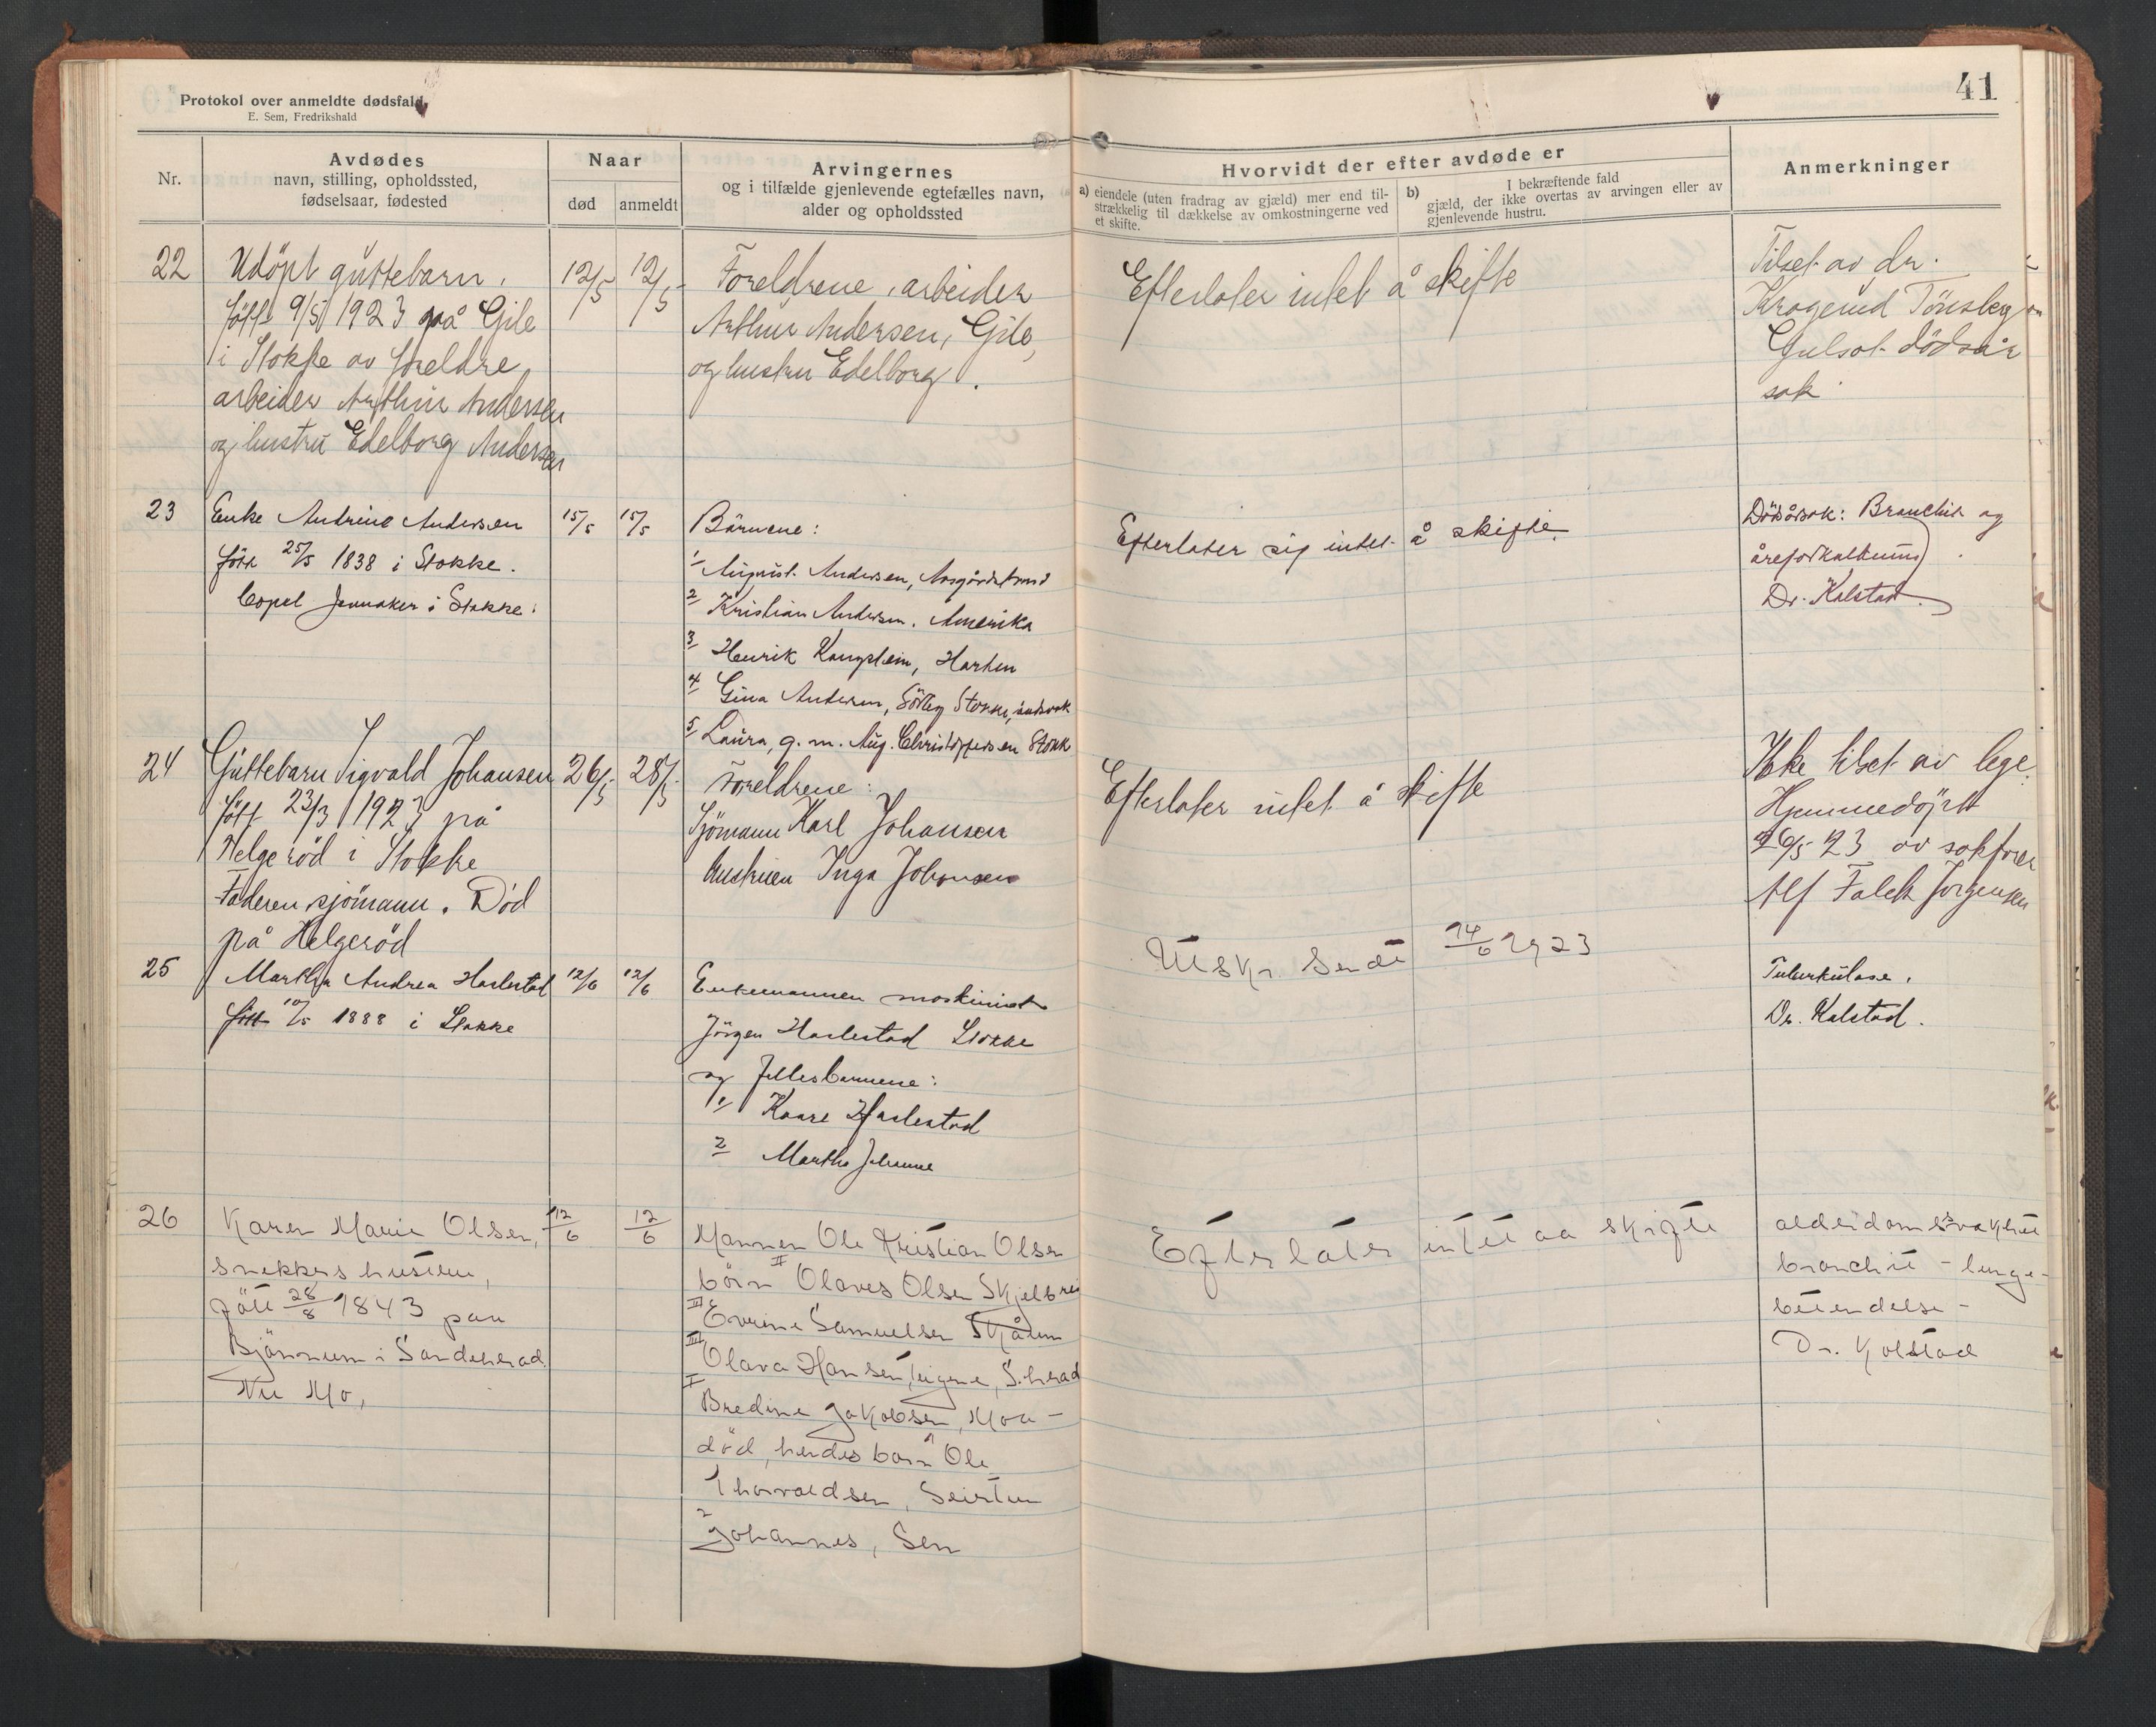 Protokol over anmeldte dødsfald
E. Sem, Fredrikshald
41
Nr.
Avdødes
navn, stilling, opholdssted,
fødselsaar, fødested
Naar
død
anmeldt
Arvingernes
og i tilfælde gjenlevende egtefælles navn,
alder og opholdssted
Hvorvidt der efter avdøde er
a) eiendele (uten fradrag av gjæld) mer end til-
strækkelig til dækkelse av omkostningerne ved
et skifte.
b) I bekræftende fald
gjæld, der ikke overtas av arvingen eller av
gjenlevende hustru.
Anmerkninger
22
Udöpt guttebarn,
född 9/5 1923 på Gile
i Stokke av foreldre,
arbeider Arthur Andersen
og hustru Edelborg Andersen
12/5
12/5
Foreldrene, arbeider
Arthur Andersen, Gile,
og hustru Edelborg.
Efterlater intet å skifte
Tilset av dr.
Krogerud Tönsberg
Gulsot dödsår
sak
23
Enke Andrine Andersen
född 25/5 1838 i Stokke.
i Stokke.
15/5
15/5
Börnene:
1 August Andersen, Aasgårdstrand
2 Kristian Andersen, Amerika
3 Henrik Kangstein,
4 Gina Andersen, Stokke,
5 Laura, g. m. Aug. Christoffersen Stokk
Efterlater sig intet å skifte.
Dödsårsak: Bronchit og
åreforkalkning
Dr. Kolstad.
24
Guttebarn Sigvald Johansen
född 23/3 1923 på
Helgeröd i Stokke
Faderen sjömann. Död
på Helgeröd
26/5
28/5
Foreldrene:
Sjömann Karl Johansen
Hustruen Inga Johansen
Efterlater intet å skifte
Ikke tilset av lege.
Hjemmedöpt
26/5 23 av
Alf Falck Jörgensen
25
Martha Andrea Haslestad
född 10/5 1888 i Stokke
12/6
12/6
Enkemannen maskinist
Jörgen Haslestad Stokke
og fellesbarnene:
1 Kaare Haslestad
2 Martha Johanne
Utskr. sendt 14/6 1923
Tuberkulose.
Dr. Kolstad.
26
Karen Marie Olsen,
snekkers hustru,
född 28/8 1843 paa
Bjönnum i Sandeherad.
Nu Mo,
12/6
12/6
Mannen Ole Kristian Olsen
börn II Olaves Olsen Skjelbrei
III Evrine Samuelsen Skåum
IIII Olava Hansen, S.herad
I Bredine Jakobsen, Moa -
död, hendes barn 1 Ole
Thorvaldsen,
2 Johannes, Sem
Efterlater intet aa skifte
alderdomssvakhet
bronchit - lunge-
betendelse -
Dr. Kolstad